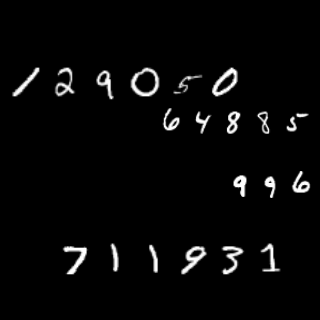 129050
64885
996
711931